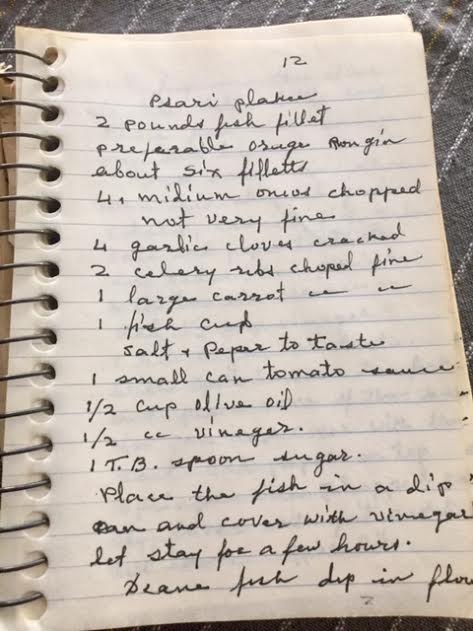 12
Psari plakee
2 pounds fish fillet
preparable oruge Rongin
about six filletts
4, midium onios chopped
not very fine
4 garlic cloves cracked
2 celery ribs choped fine
1 large carrot " "
1 fish cup
Salt + Peper to taste
1 small can tomato sauce
1/2 cup olive oil
1/2 " vinegar.
1 T.B. spoon sugar.
Place the fish in a dip
pan and cover with vinegar
let stay for a few hours.
Deane fish dip in flou